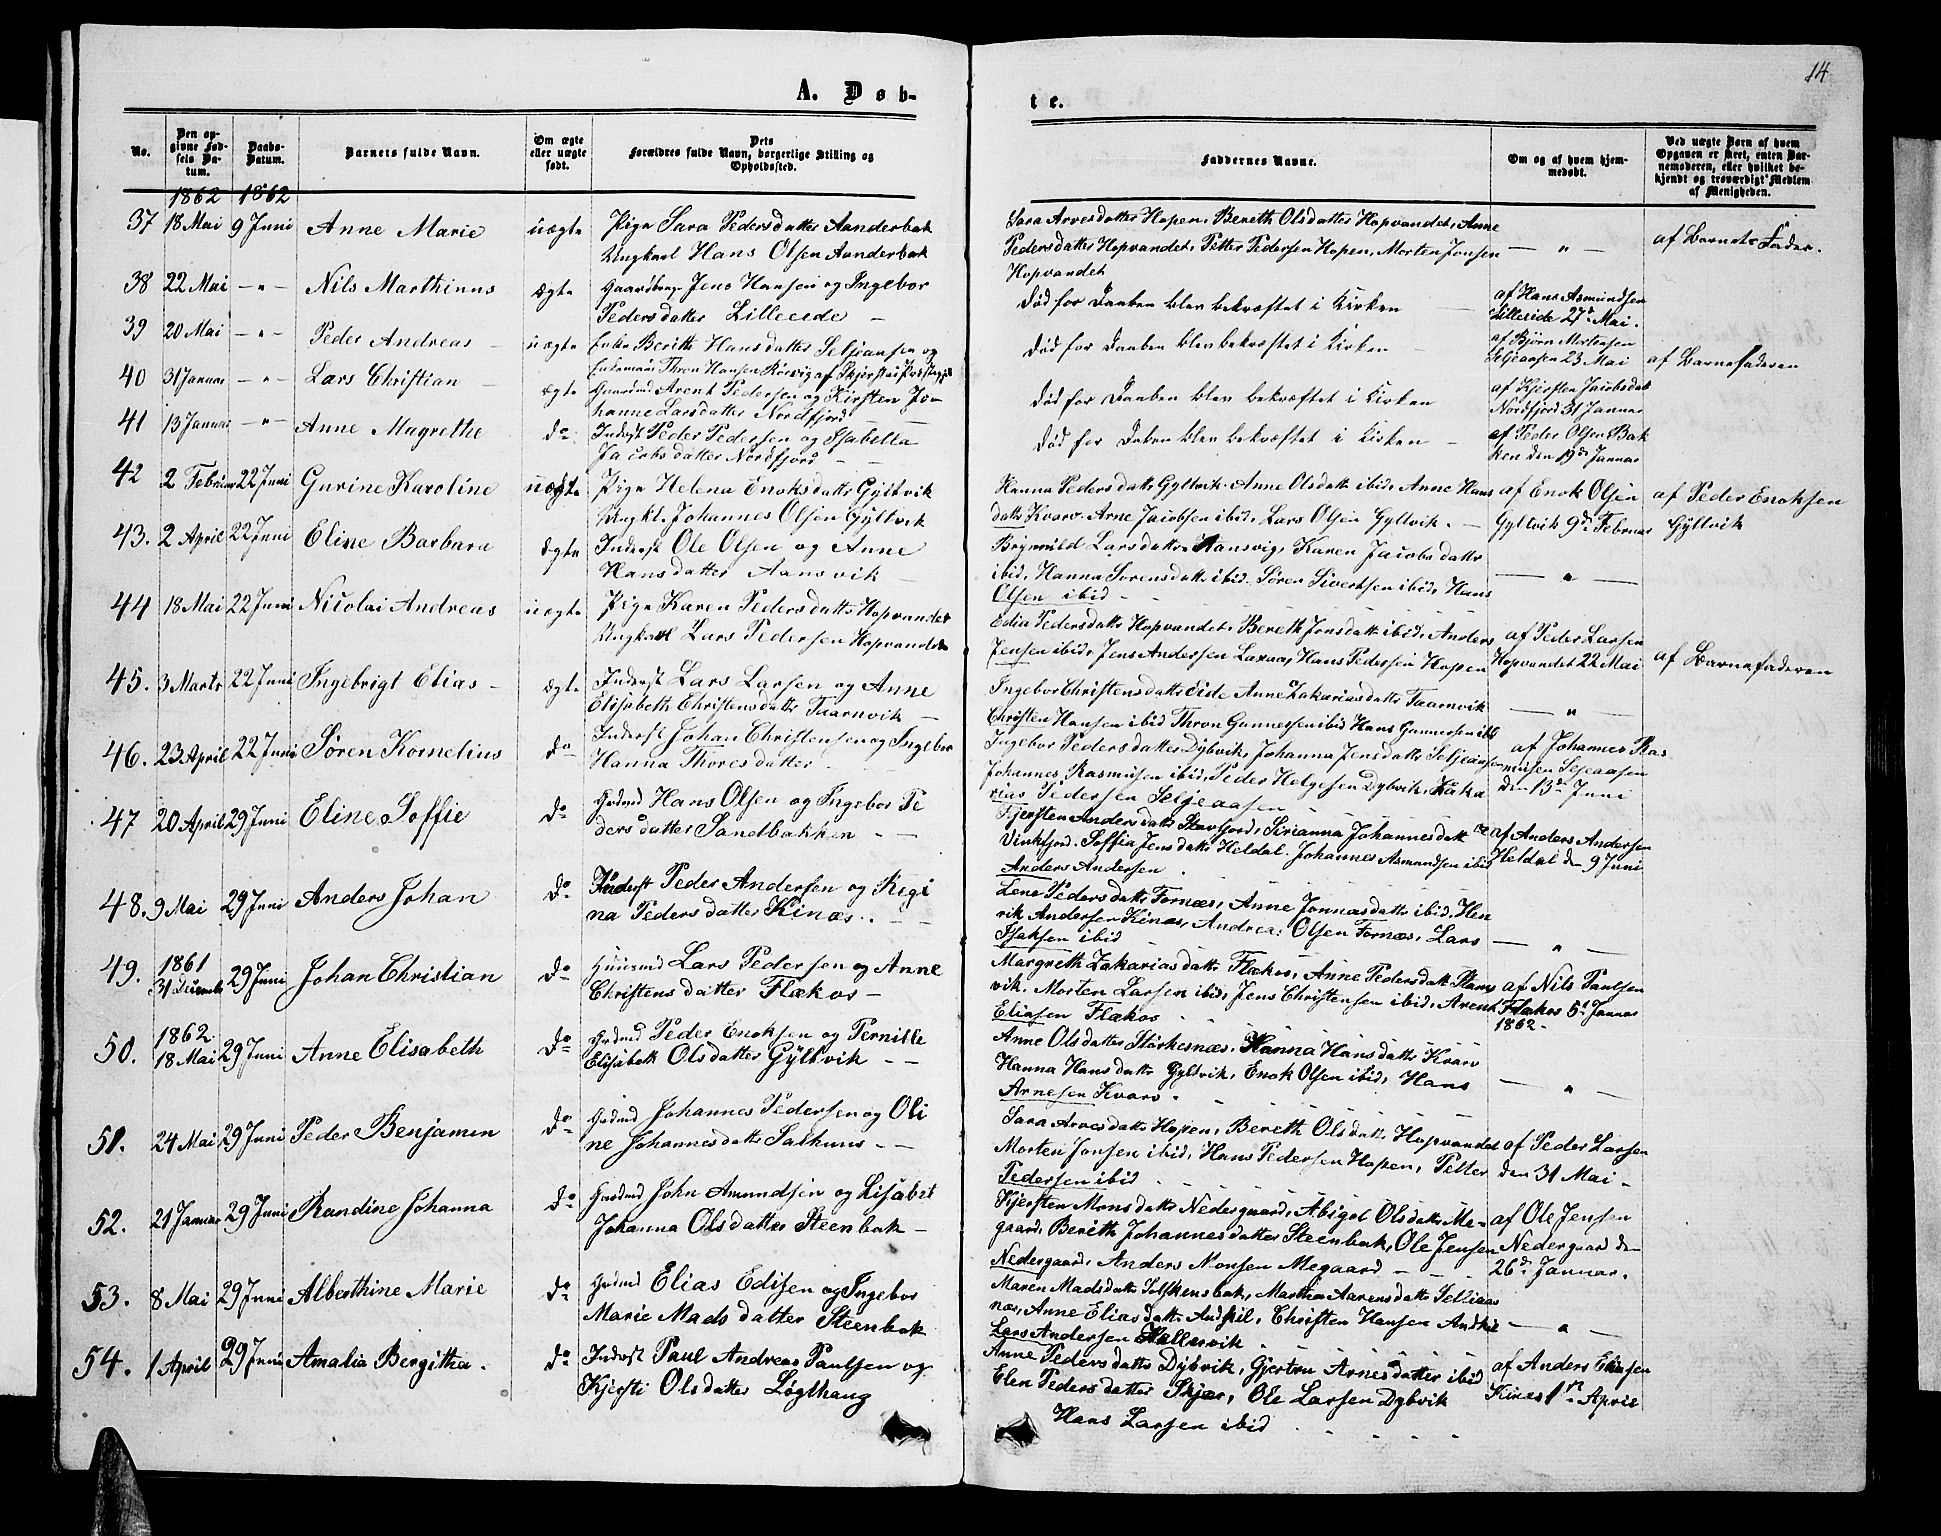 14
A. Døb-
te.
No.
Den opgivne Fødsels Datum.
Daabs-Datum.
Barnets fulde Navn.
Om ægte eller uægte født.
Dets Forældres fulde Navn, borgerlige Stilling og Opholdssted.
Faddernes Navne.
Om og af hvem hjemmedøbt.
Ved uægte Børn af hvem Opgaven er skeet, enten Barnemoderen, eller hvilket bekjendt og troværdigt Medlem af Menigheden.
1862 1862
37 18 Mai 9 Juni Anne Marie uægte Pige Sara Pedersdatter Aanderbak
Ungkarl Hans Olsen Aanderbak
Sara Arvesdatter Hopen, Bereth Olsdatter Hopvandet, Anne
Pedersdatter Hopvandet, Petter Pedersen Hopen, Morten Jonsen — " — af Barnets Fader.
Hopvandet
38 22 Mai — " — Nils Marthinus ægte Gaardbrug. Jens Hansen og Ingebor
Pedersdatter Lilleeide —
Død før Daaben blev bekræftet i Kirken — af Hans Asmundsen
Lilleeide 27de Mai.
39 20 Mai — " — Peder Andreas — uægte Enke Berith Hansdatter Seljeaasen og
Enkemand Thron Hansen Rørvig af Skjerstad Præstegjeld
Død før Daaben blev bekræftet i Kirken — af Bjørn Mortensen
Seljeaasen 23 Mai af Barnefaderen
40 31 Januar — " — Lars Christian — ægte Gaardmd Arent Pedersen og Kirsten Jo-
hanne Larsdatter Nordfjord —
Død før Daaben blev bekræftet i Kirken af Kjersten Jacobsdat
Nordfjord 31 Januar
41 13 Januar — " — Anne Magrethe do Inderst Peder Pedersen og Isabella
Jacobsdatter Nordfjord —
Død før Daben blev bekræftet i Kirken — af Peder Olsen Bak
ken den 19de Januar
42 2 Februar 22 Juni Gurine Karoline uægte Pige Helena Enoksdatter Gyltvik
Ungkl. Johannes Olsen Gyltvik
Hanna Pedersdatt Gyltvik. Anne Olsdatt ibid, Anne Hans af Enok Olsen af Peder Enoksen
datter Kvarv. Arne Jacobsen ibid. Lars Olsen Gyltvik. — Gyltvik 9de Februar Gyltvik
43. 2 April 22 Juni Eline Barbara ægte Inderst Ole Olsen og Anne
Hansdatter Aansvik —
Brynhild Larsdatter Aansvig, Karen Jacobsdatter
ibid, Hanna Sørensdatt ibid. Søren Sivertsen ibid, Hans — " —
Olsen ibid
44 18 Mai 22 Juni Nicolai Andreas uægte Pige Karen Pedersdatter Hopvandet
Ungkarl Lars Pedersen Hopvandet
Edia Pedersdatter Hopvandet, Bereth Jonsdatt ibid, Anders af Peder Larsen
Jensen ibid, Jens Andersen Laxaa, Hans Pedersen Hopen Hopvandet 22 Mai af Barnefaderen
45. 3 Marts 22 Juni Ingebrigt Elias — ægte Inderst Lars Larsen og Anne
Elisabeth Christensdatter Taarnvik —
Ingebor Christensdatter Eide Anne Zakariasdatter Taarnvik
Christen Hansen ibid Thron Gunnersen ibid Hans Gunnersen ibid — " —
46. 23 April 22 Juni Søren Kornelius do Inderst Johan Christensen og Ingebor
Hanna Thoresdatter
Ingebor Pedersdatter Dybvik, Johanna Jensdatter Seljeaasen af Johannes Ras
Johannes Rasmusen ibid, Peder Helgesen Dybvik, Zaka musen Seljeaasen
rias Pedersen Seljeaasen den 13de Juni
47 20 April 29 Juni Eline Soffie do Grdmd Hans Olsen og Ingebor Pe
dersdatter Sandbakken —
Kjersten Andersdatter Storfjord, Sirianna Johannesdatter af Anders Andersen
Vinkfjord. Soffia Jensdatter Heldal. Johannes Asmundsen ibid Heldal den 9 Juni
Anders Andersen
48. 9 Mai 29 Juni Anders Johan do Inderst Peder Andersen og Regi
na Pedersdatter Kinæs. —
Lene Pedersdatter Fornæs, Anne Jonnasdatter ibid, Hen
rik Andersen Kinæs, Andreas Olsen Fornæs, Lars — " —
Isaksen ibid
49. 1861
31 Decemb 29 Juni Johan Christian do Huusmd Lars Pedersen og Anne
Christensdatter Flækos —
Margreth Zakariasdatter Flækos, Anne Pedersdatt Stams
vik. Morten Larsen ibid, Jens Christensen ibid, Arent af Nils Paulsen
Eliasen Flækos Flækos 5te Januar
1862.
50. 1862.
18 Mai 29 Juni Anne Elisabeth do Grdmd Peder Enoksen og Pernille
Elisabeth Olsdatter Gyltvik —
Anne Olsdatter Storkesnæs, Hanna Hansdatter Kvarv
Hanna Hansdatter Gyltvik, Enok Olsen ibid, Hans — " —
Arnesen Kvarv.
51. 24 Mai 29 Juni Peder Benjamin do Grdmd Johannes Pedersen og Oli
ne Johannesdatter Salhuus —
Sara Arvesdatter Hopen, Bereth Olsdatt Hopvandet af Peder Larsen
Morten Jonsen ibid, Hans Pedersen Hopen, Petter den 31 Mai —
Pedersen ibid
52. 21 Januar 29 Juni Randine Johanna do Grdmd John Amundsen og Lisabet
Johanna Olsdatter Steenbak —
Kjersten Monsdatter Nedergaard, Abigel Olsdatter Me- af Ole Jensen
gaard, Berith Johannesdatter Steenbak, Ole Jensen Nedergaard den
Nedergaard, Anders Monsen Megaard — 26de Januar.
53. 8 Mai 29 Juni Alberthine Marie do Grdmd Elias Edisen og Ingebor
Marie Madsdatter Steenbak
Maren Madsdatter Tolfskensbak, Martha Aarensdatter Selliaas
næs, Anne Eliasdatter Andkil, Christen Hansen Andkil — " —
Lars Andersen Hallesvik
54. 1 April 29 Juni Amalia Bergitha. do Inderst Paul Andreas Paulsen og
Kjersti Olsdatter Løgthaug
Anne Pedersdatter Dybvik, Gjertru Arnesdatter ibid af Anders Eliasen
Elen Pedersdatter Skjær, Ole Larsen Dybvik Kinæs 1ste April
Hans Larsen ibid